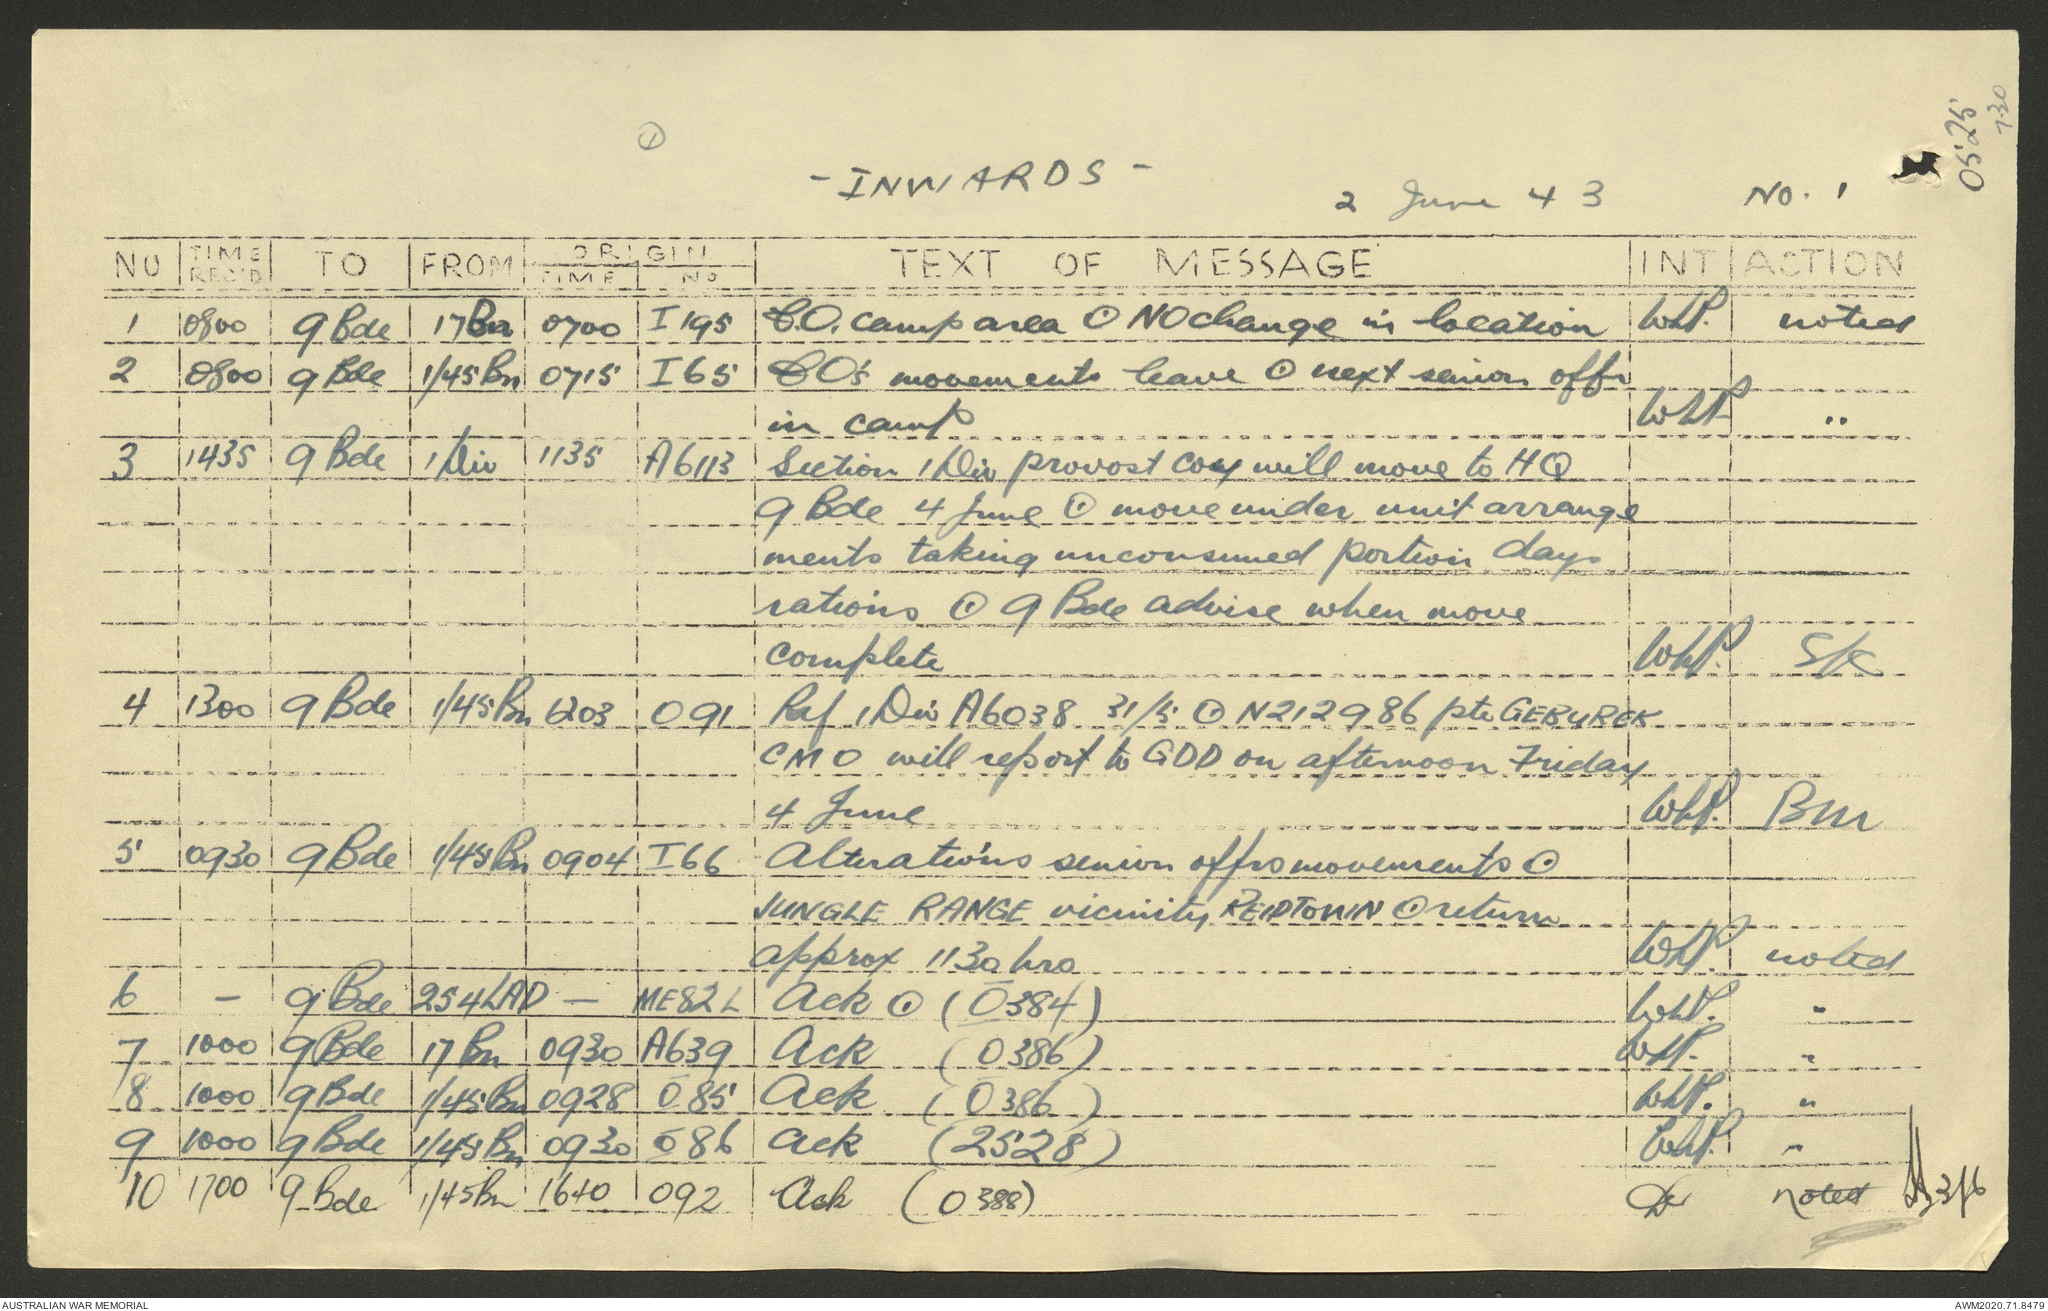 0525
7.30
1
- INWARDS -
2 June 43 No. 1
NO TIME REC'D TO FROM ORIGIN TIME NO TEXT OF MESSAGE INT ACTION
1 0800 9 Bde 17 Bn 0700 I 195 C.O. camp area ⊙ NO change in location WhP. noted
2 0800 9 Bde 1/45 Bn 0715 I 65 CO's movements leave ⊙ next senior offr
in camp WhP "
3 1435 9 Bde 1 Div 1135 A6113 Section 1 Div provost coy will move to HQ
9 Bde 4 June ⊙ move under unit arrange
ments taking unconsumed portion days
rations ⊙ 9 Bde advise when move
complete WhP. SK
4 1300 9 Bde 1/45 Bn 1203 091 Ref 1 Div A6038 31/5 ⊙ N212986 pte GEBUREK
CMO will report to GDD on afternoon Friday
4 June WhP. BM
5 0930 9 Bde 1/45 Bn 0904 I 66 Alterations senior offrs movements ⊙
JUNGLE RANGE vicinity REIDTOWN ⊙ return
approx 1130 hrs WhP. noted
6 - 9 Bde 254 LAD - ME82L Ack ⊙ (O384) WhP. "
7 1000 9 Bde 17 Bn 0930 A639 Ack (O386) WhP. "
8 1000 9 Bde 1/45 Bn 0928 O85 Ack (O386) WhP. "
9 1000 9 Bde 1/45 Bn 0930 O86 Ack (2528) WhP. "
10 1700 9 Bde 1/45 Bn 1640 092 Ack (O388) noted 3/6
AUSTRALIAN WAR MEMORIAL AWM2020.71.8479